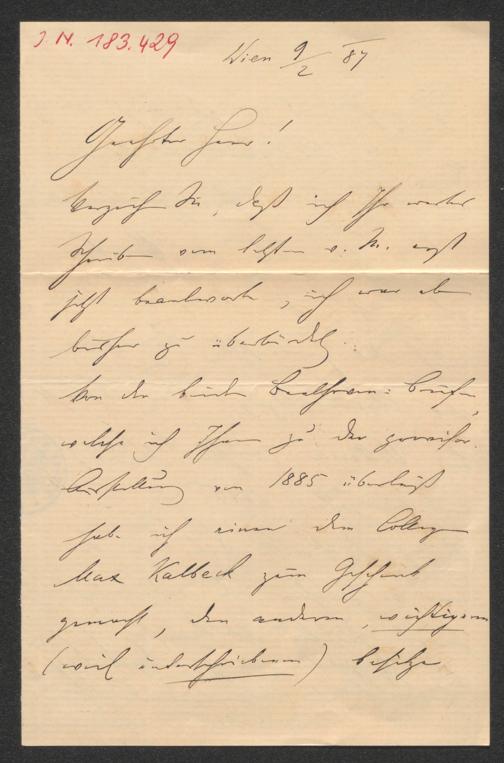 J. N. 183.429
Wien 9/2 87
Geehrter Herr!
Verzeihen Sie, daß ich Ihr werthes
Schreiben vom letzten v. M. erst
jetzt beantworte, ich war eben
bisher zu überbürdet.
Von den beiden Beethoven-Briefen,
welche ich Ihnen zu der
Ausstellung von 1885 überließ
habe ich einen dem Collegen
Max Kalbeck zum Geschenk
gemacht, den anderen, wichtigeren
(weil unterschriebenen) besitze